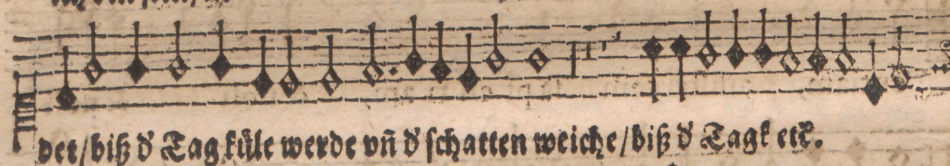 det/biß d' Tag küle werde vñ d' schatten weiche/biß d' Tagk etc̃.